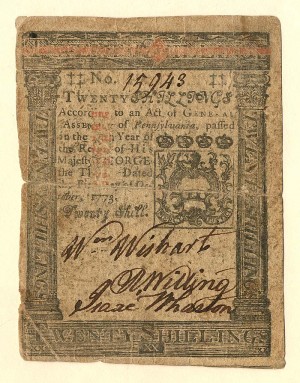 No. 15043
TWENTY SHILLINGS
According to an Act of GENERAL
Assembly of Pennsylvania, passed
in the Year of
the Reign of His
Majesty GEORGE
the Third. Dated
1773.
Twenty Shill.
TWENTY SHILLINGS
TWENTY SHILLINGS
Wm Wishart
Willing
Isaac Wharton
TWENTY SHILLINGS